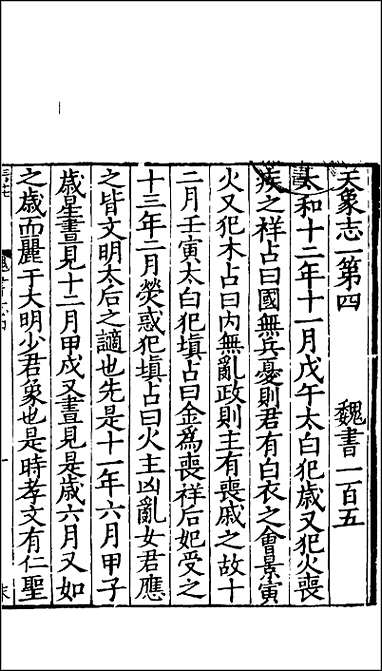 天象志一第四 魏書一百五
太和十二年十一月戊午太白犯歲又犯火喪
疾之祥占曰國無兵憂則君有白衣之會景寅
火又犯木占曰内無亂政則主有喪戚之故十
二月壬寅太白犯塡占曰金爲喪祥后妃受之
十三年二月熒惑犯塡占曰火主凶亂女君應
之皆文明太后之讁也先是十一年六月甲子
歲星晝見十二月甲戌又晝見是歲六月又如
之歲而麗于大明少君象也是時孝文有仁聖